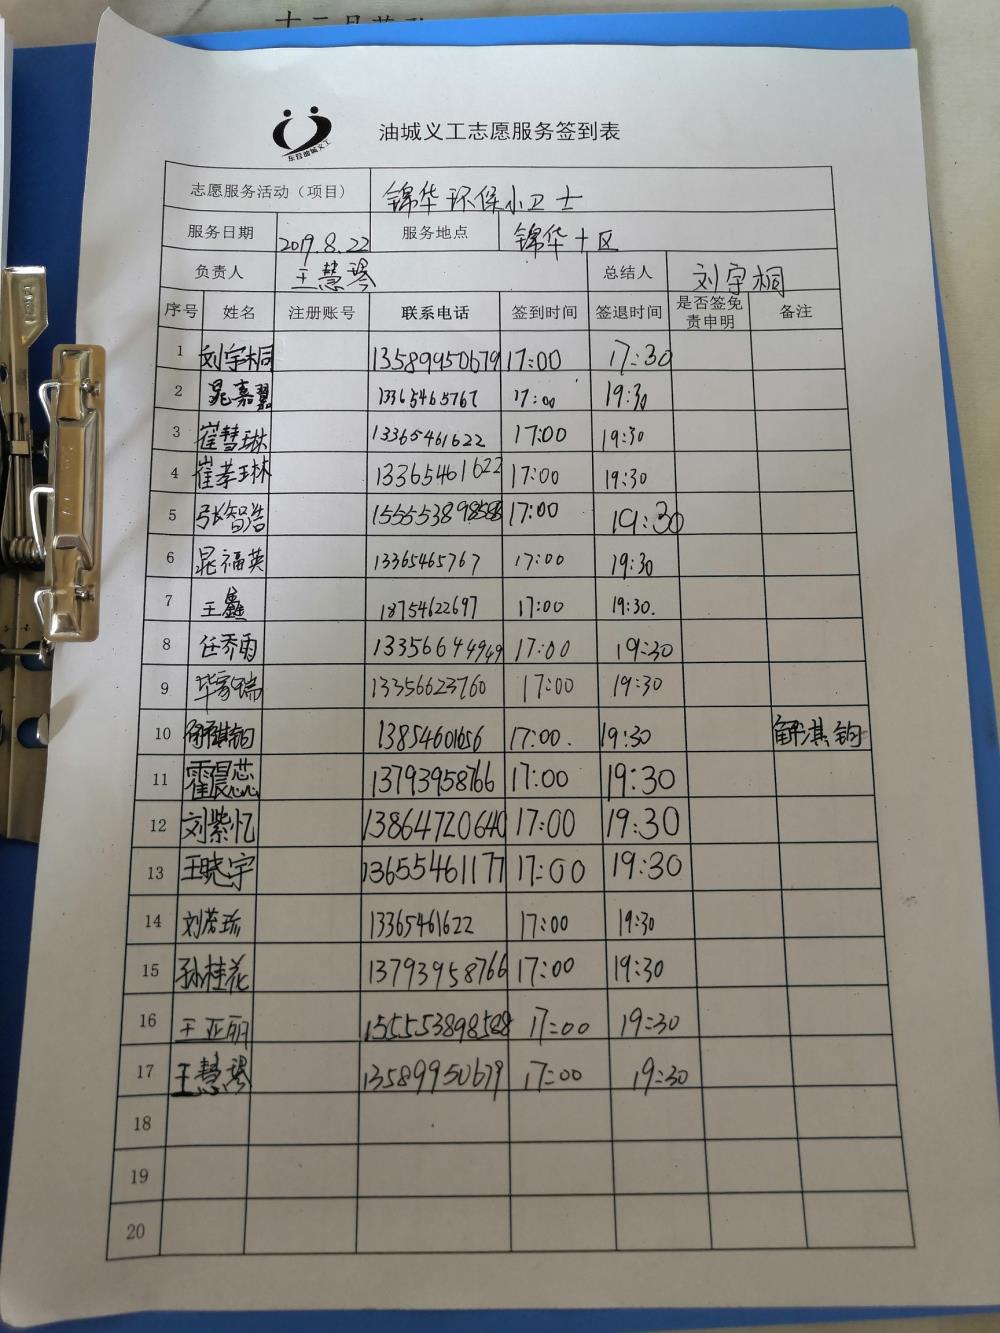 油城义工志愿服务签到表
东营油城义工
志愿服务活动（项目） 锦华环保小卫士
服务日期 2019.8.22 服务地点 锦华十区
负责人 王慧琴 总结人 刘宇桐
序号 姓名 注册账号 联系电话 签到时间 签退时间 是否签免责申明 备注
1 刘宇桐 13589950679 17:00 17:30
2 晁嘉翼 13365465767 17:00 19:30
3 崔慧琳 13365461622 17:00 19:30
4 崔孝琳 13365461622 17:00 19:30
5 张智浩 15555389858 17:00 19:30
6 晁福英 13365465767 17:00 19:30
7 王鑫 18754622697 17:00 19:30.
8 任乔雨 13356644949 17:00 19:30
9 毕家瑞 13356623760 17:00 19:30
10 解淇钧 13854601656 17:00. 19:30 解淇钧
11 霍晨芯 13793958766 17:00 19:30
12 刘紫忆 13864720640 17:00 19:30
13 王晓宇 13655461177 17:00 19:30
14 刘若琉 13365461622 17:00 19:30
15 孙桂花 13793958766 17:00 19:30
16 王亚丽 17:00 19:30
17 王慧琴 13589950679 17:00 19:30
18
19
20